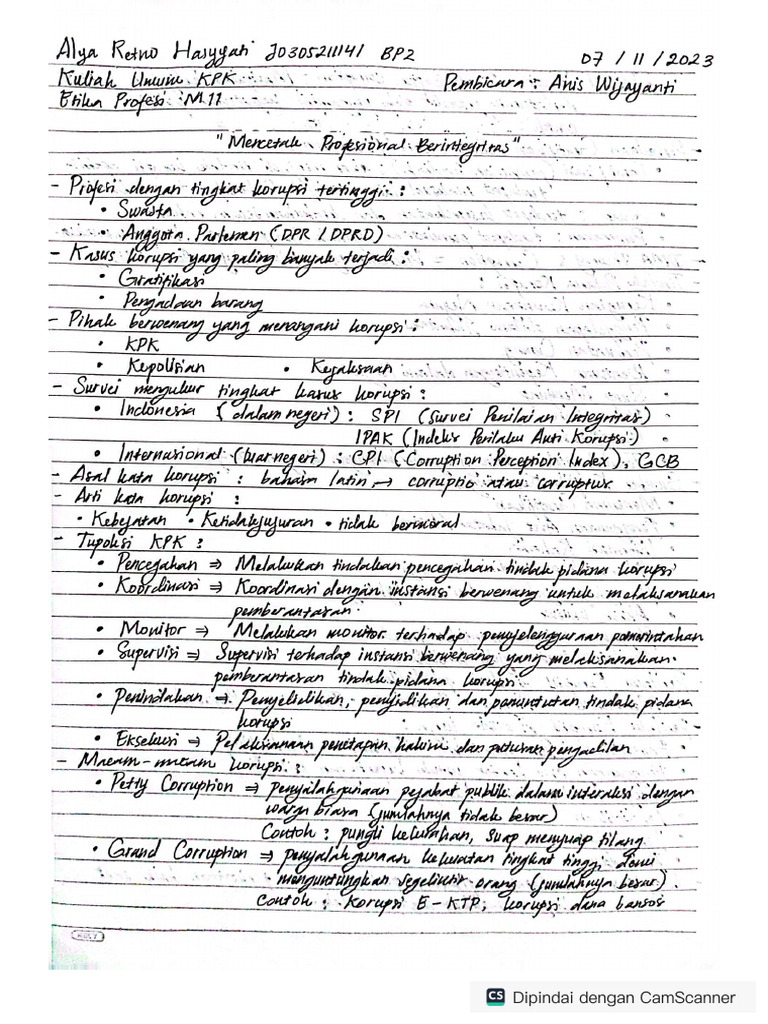 Alya Retno Hasyyati J0305211141 BP2 07 / 11 / 2023
Kuliah Umum KPK Pembicara : Anis Wijayanti
Etika Profesi M.11
"Mencetak Profesional Berintegritas"
- Profesi dengan tingkat korupsi tertinggi :
• Swasta
• Anggota Parlemen (DPR / DPRD)
- Kasus korupsi yang paling banyak terjadi :
• Gratifikasi
• Pengadaan barang
- Pihak berwenang yang menangani korupsi :
• KPK
• Kepolisian • Kejaksaan
- Survei mengukur tingkat kasus korupsi :
• Indonesia (dalam negeri) : SPI (Survei Penilaian Integritas)
IPAK (Indeks Perilaku Anti Korupsi)
• Internasional (luar negeri) : CPI (Corruption Perception Index), GCB
- Asal kata korupsi : bahasa latin → corruptio atau corruptus
- Arti kata korupsi :
• Kebejatan • Ketidakjujuran • tidak bermoral
- Tupoksi KPK :
• Pencegahan ⇒ Melakukan tindakan pencegahan tindak pidana korupsi
• Koordinasi ⇒ Koordinasi dengan instansi berwenang untuk melaksanakan
pemberantasan
• Monitor ⇒ Melakukan monitor terhadap penyelenggaraan pemerintahan
• Supervisi ⇒ Supervisi terhadap instansi berwenang yang melaksanakan
pemberantasan tindak pidana korupsi
• Penindakan ⇒ Penyelidikan, penyidikan dan penuntutan tindak pidana
korupsi
• Eksekusi ⇒ Pelaksanaan penetapan hakim dan putusan pengadilan
- Macam-macam korupsi :
• Petty Corruption ⇒ penyalahgunaan pejabat publik dalam interaksi dengan
warga biasa (jumlahnya tidak besar)
Contoh : pungli kelurahan, suap menyuap tilang
• Grand Corruption ⇒ penyalahgunaan kekuatan tingkat tinggi demi
menguntungkan segelintir orang (jumlahnya besar)
Contoh : Korupsi E-KTP, korupsi dana bansos
CS Dipindai dengan CamScanner